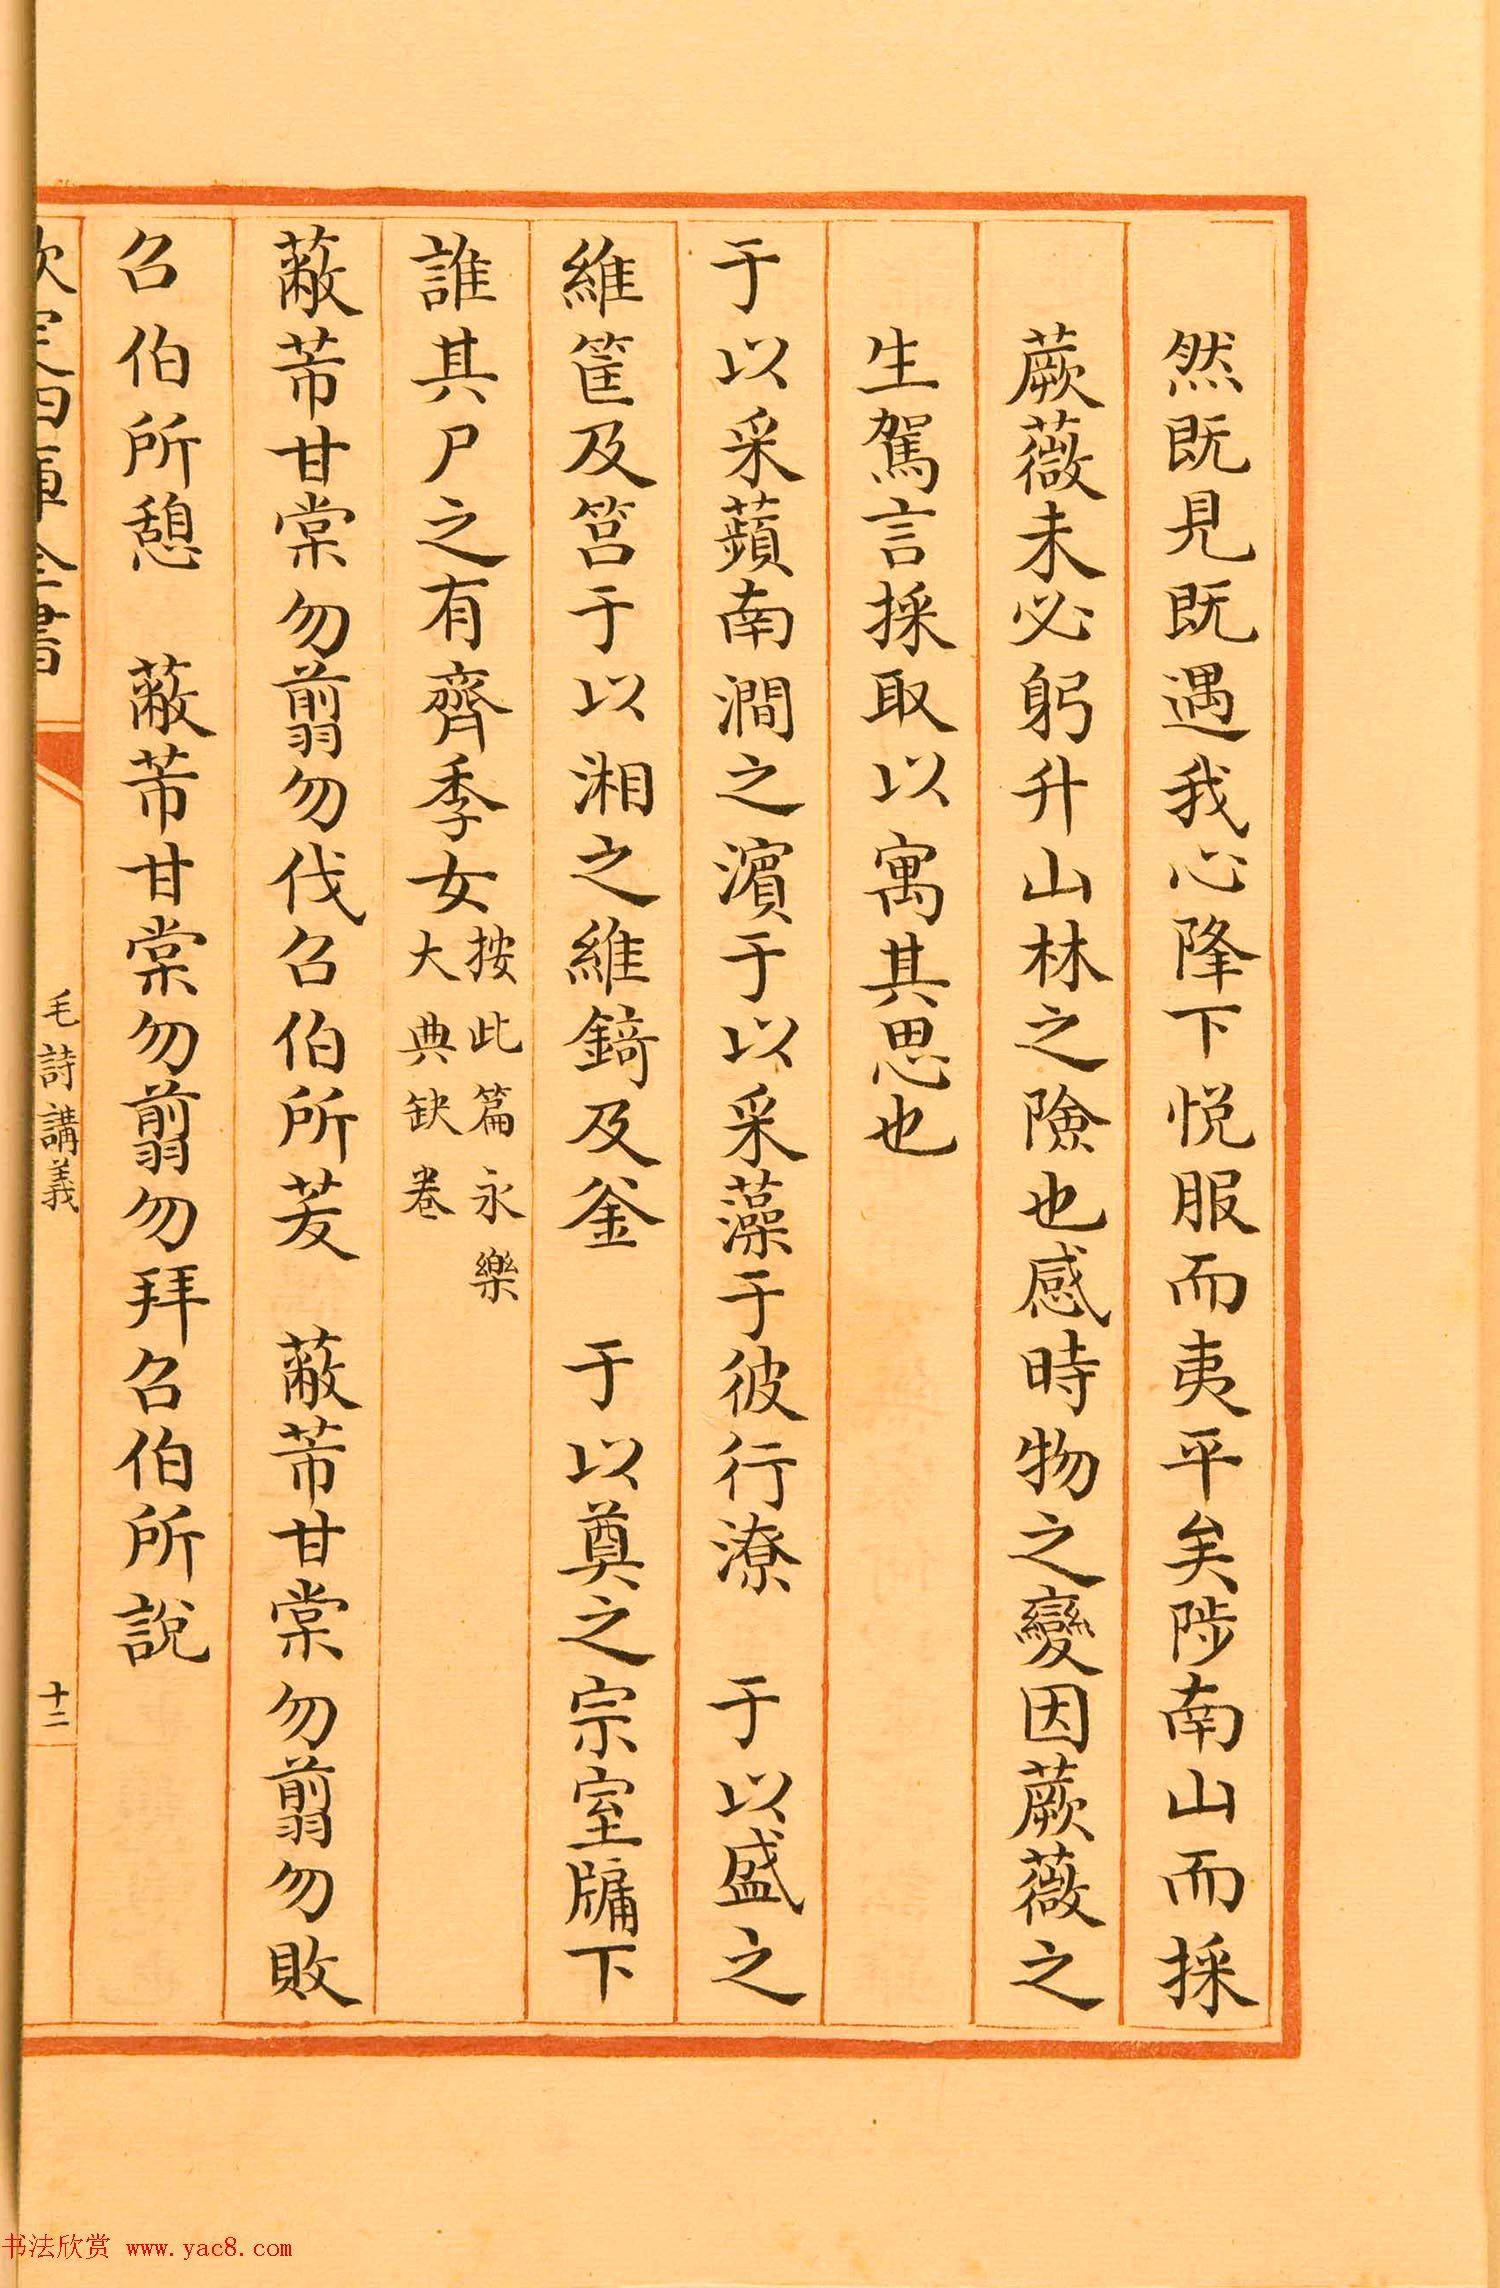 然既見既遇我心降下悅服而夷平矣陟南山而採
蕨薇未必躬升山林之險也感時物之變因蕨薇之
生駕言採取以寓其思也
于以采蘋南澗之濱于以采藻于彼行潦　于以盛之
維筐及筥于以湘之維錡及釜　于以奠之宗室牖下
誰其尸之有齊季女按此篇永樂
大典缺卷
蔽芾甘棠勿翦勿伐召伯所茇　蔽芾甘棠勿翦勿敗
召伯所憩　蔽芾甘棠勿翦勿拜召伯所說
欽定四庫全書
毛詩講義
十二
书法欣赏 www.yac8.com